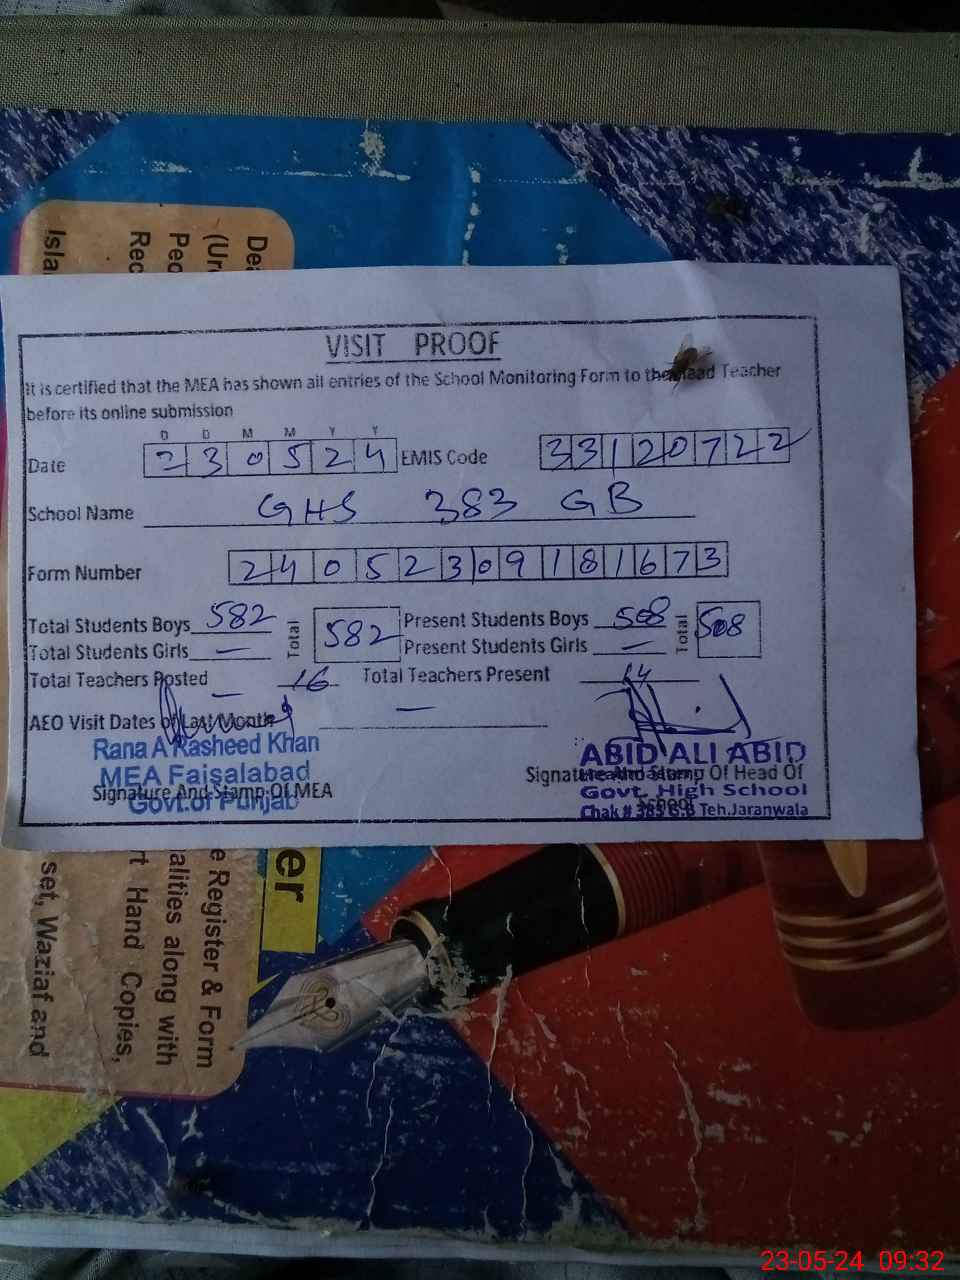 Dea
(Ur
Pec
Rec
Isla
VISIT PROOF
It is certified that the MEA has shown all entries of the School Monitoring Form to the Head Teacher
before its online submission
D D M M Y Y
Date 2 3 0 5 2 4 EMIS Code 3 3 1 2 0 7 2 2
School Name GHS 383 GB
Form Number 2 4 0 5 2 3 0 9 1 8 1 6 7 3
Total Students Boys 582 Total 582 Present Students Boys 508 Total 508
Total Students Girls — Present Students Girls —
Total Teachers Posted 16 Total Teachers Present 14
AEO Visit Dates of Last Month —
Rana A Rasheed Khan
MEA Faisalabad
Govt.of Punjab
Signature And Stamp Of MEA
ABID ALI ABID
Signature And Stamp Of Head Of
School
Govt. High School
Chak # 383 G.B Teh.Jaranwala
er
e Register & Form
alities along with
rt Hand Copies,
set, Waziaf and
23-05-24 09:32